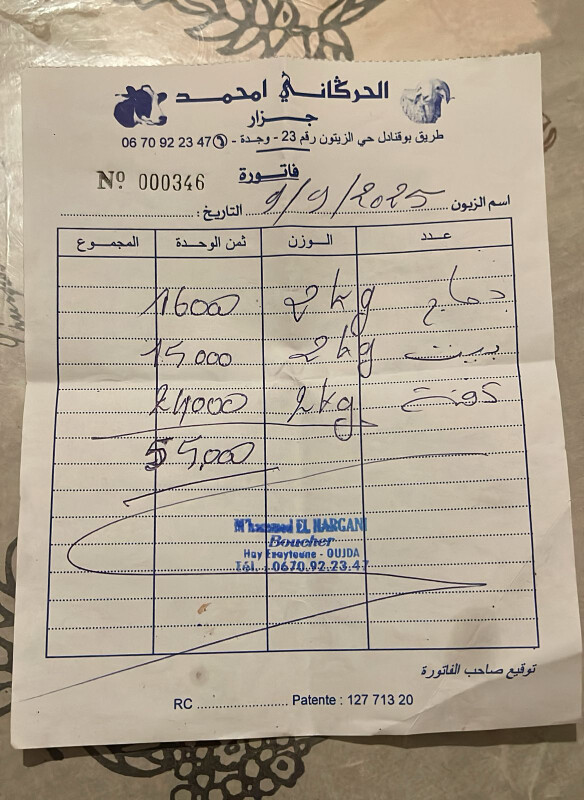 الحرڭاني امحمد
جزار
طريق بوقنادل حي الزيتون رقم 23 - وجدة - 06 70 92 23 47
فاتورة
Nº 000346
اسم الزبون ........ التاريخ : 9/9/2025
عدد الوزن ثمن الوحدة المجموع
دجاج 2kg 16000
بيبت 2kg 15.000
كفتة 2kg 24000
55,000
M'hammed EL HARGANI
Boucher
Hay Ezaytoune - OUJDA
Tél. : 0670.92.23.47
توقيع صاحب الفاتورة
RC ........................ Patente : 127 713 20